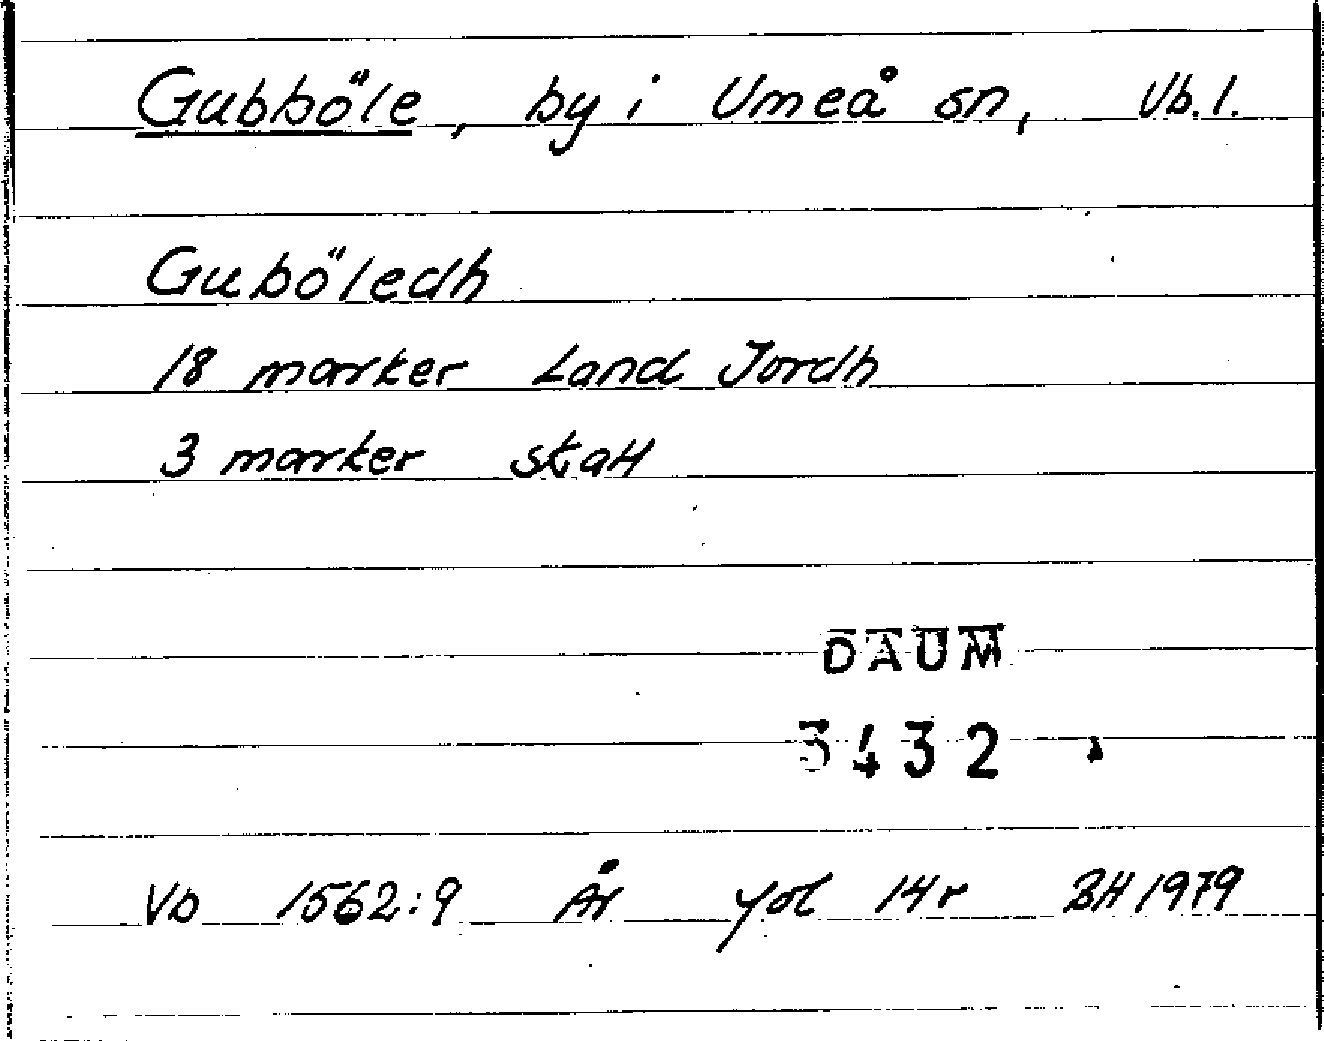 Gubböle, by i Umeå sn, Vb. l.
Guböledh
18 marker Land Jordh
3 marker skatt
DAUM
3432
Vb 1562:9 År yol 14r BH 1979